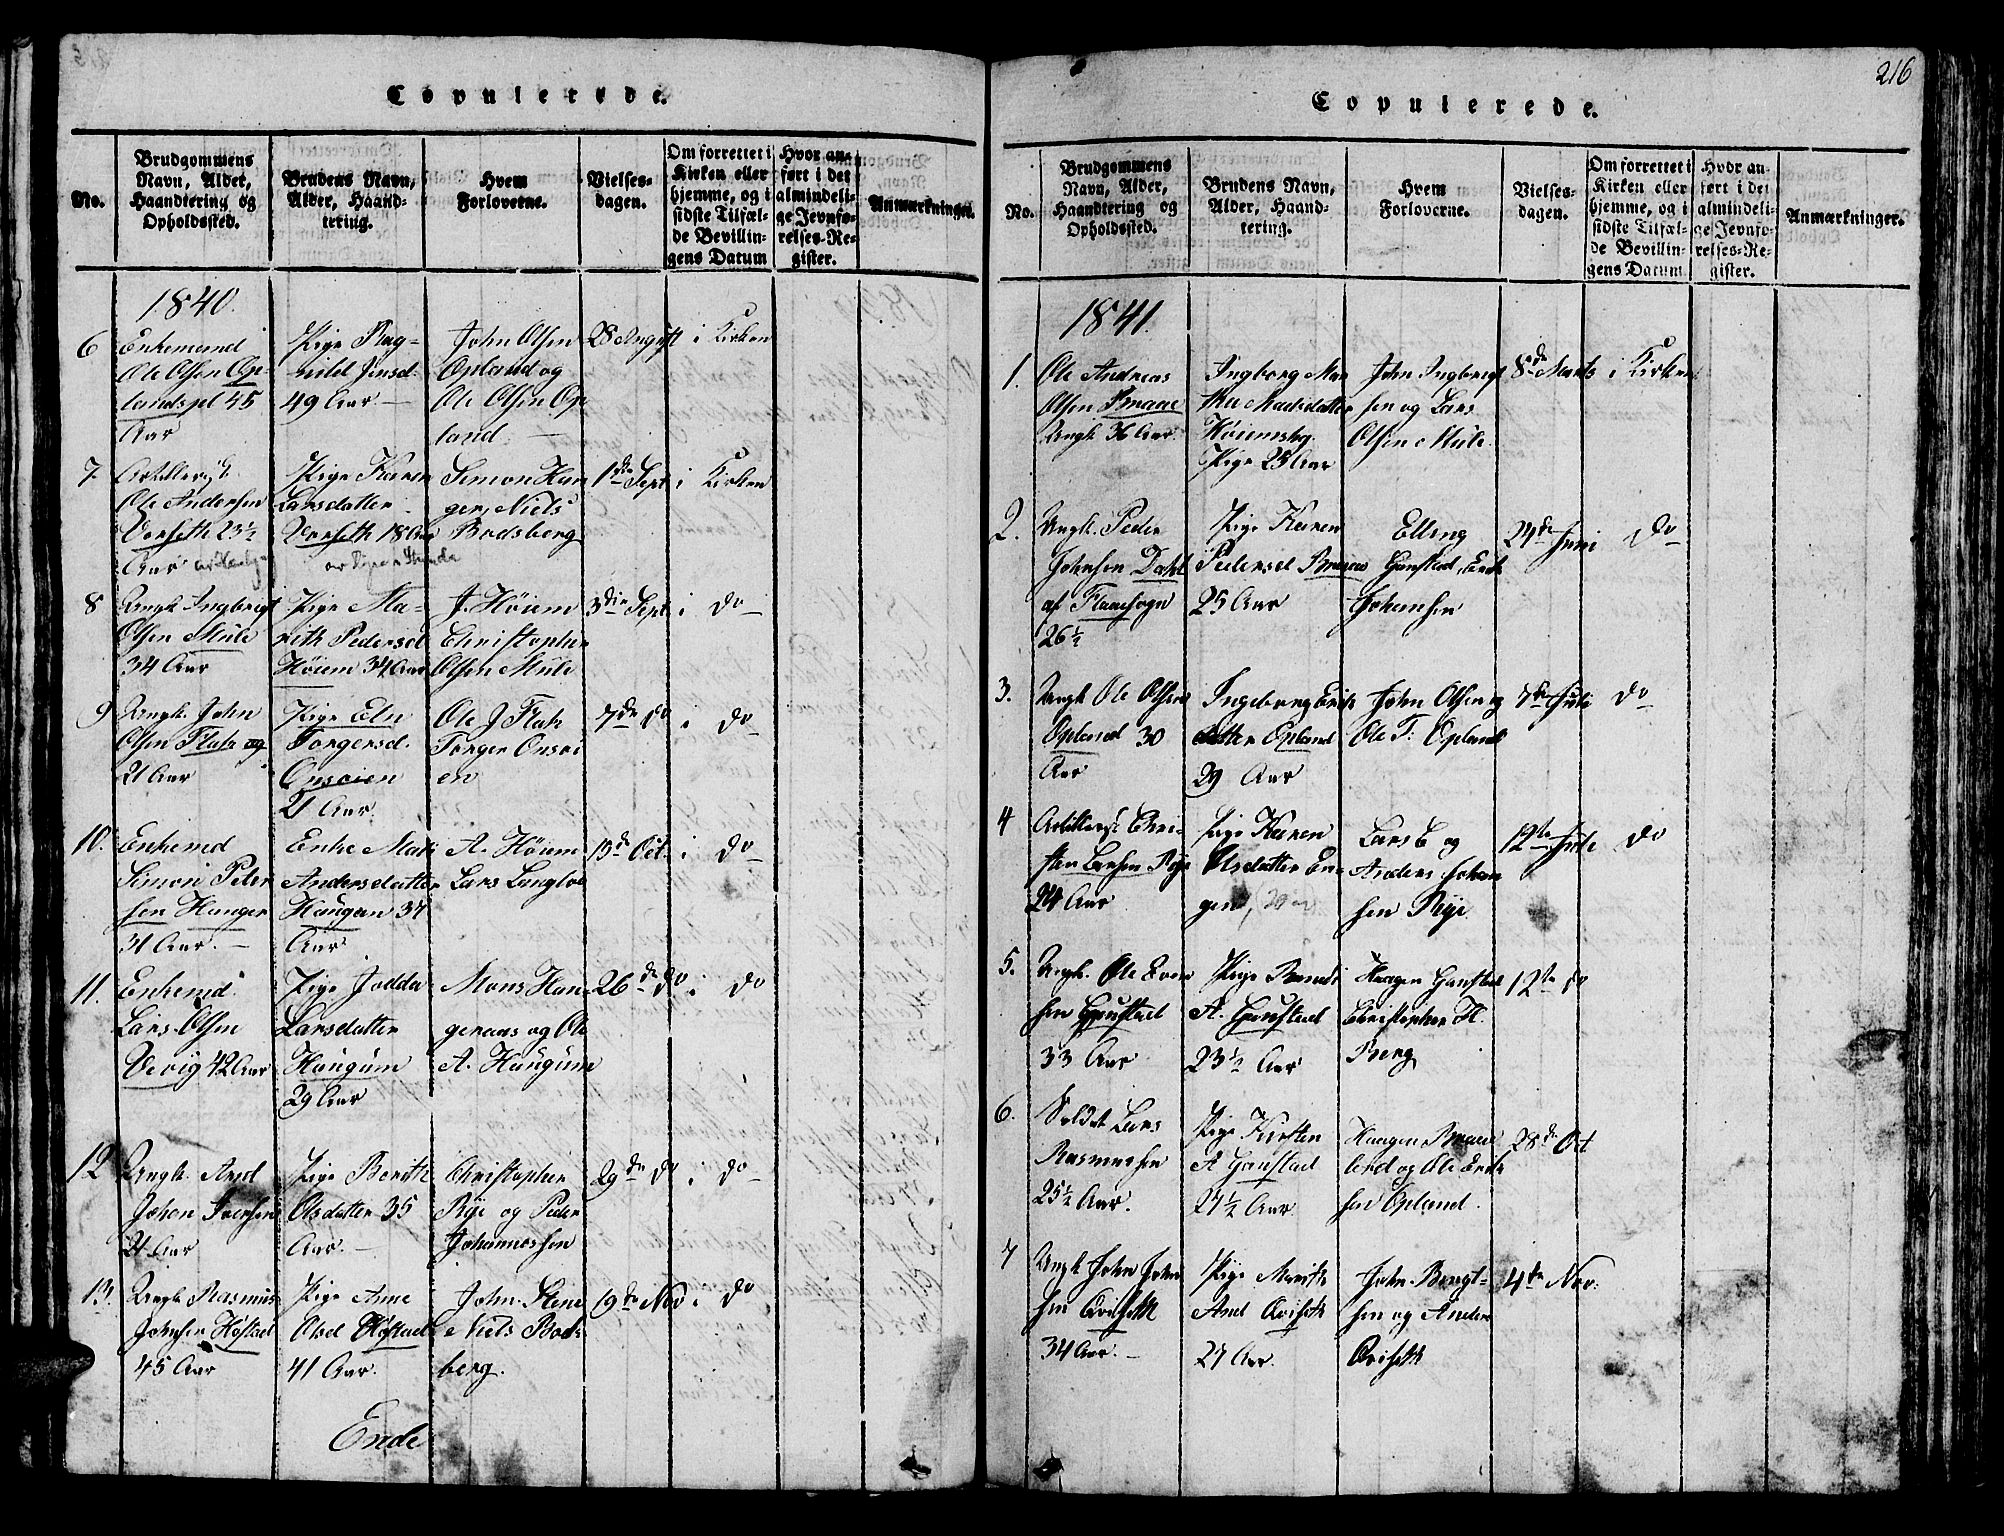 Copulerede.
No.
Brudgommens
Navn, Alder,
Haandtering og
Opholdssted.
Brudens Navn,
Alder, Haand-
tering.
Hvem
Forloverne.
Vielses-
dagen.
Om forrettet i
Kirken eller
hjemme, og i
sidste Tilfæl-
de Bevillin-
gens Datum
Hvor an-
ført i det
almindeli-
ge Jevnfo-
relses-Re-
gister.
Anmærkninger.
1840.
6
Enkemand
Ole Olsen Op-
landspl 45
Aar
Pige Rag-
nild Jonsd.
49 Aar.
John Olsen
Opland og
Ole Olsen Op
land.
28 August
i Kirken
7
Ole Andersen
Vorseth 23½
Aar
Pige Karen
Larsdatter
Vorseth 18 Aar
Simon Hau
gen, Niels
Bodsberg
1ste Sept.
i Kirken
8
Ungk. Ingbrigt
Olsen Mule
34 Aar
Pige Ma-
rith Pedersd
Höiem 34 Aar
J. Höiem
Christopher
Olsen Mule
3die Sept.
i do
9
Ungk. John
Olsen Flak
21 Aar
Pige Eln
Torgersd.
Onsöien
21 Aar.
Ole J. Flak
Torger Onsöi
en
7de do
i do
10.
Enkemd
Simon Peter
sen Haugen
31 Aar.
Enke Mali
Andersdatter
Haugan 37
Aar.
A. Höiem
Lars Langloe
13de Oct.
i do
11.
Enkemd.
Lars Olsen
Vevig 42 Aar
Pige Jodda
Larsdatter
Haugum
29 Aar
Mons Hau
geraas og Ole
A. Haugum
26de do
i do
12
Ungk. And
Johan Iversen
21 Aar
Pige Berith
Olsdatter 35
Aar.
Christopher
Rÿe og Peder
Johannessen
29de do
i do
13.
Ungk. Rasmus
Johnsen Höstad
45 Aar
Pige Ane
Olsd Höstad
41 Aar.
John Stene
Niels Bods
berg.
19de Nov
i do
Ende
216
Copulerede.
No.
Brudgommens
Navn, Alder,
Haandtering og
Opholdssted.
Brudens Navn,
Alder, Haand-
tering.
Hvem
Forloverne.
Vielses-
dagen.
Om forrettet i
Kirken eller
hjemme, og i
sidste Tilfæl-
de Bevillin-
gens Datum
Hvor an-
ført i det
almindeli-
ge Jevnfo-
relses-Re-
gister.
Anmærkninger.
1841.
1.
Ole Andreas
Olsen Braae
Ungk. 36 Aar.
Ingborg Mar
tha Madsdatter
Höiemsby.
Pige 25 Aar
John Ingbrigt
sen og Lars
Olsen Mule.
8de Marts
i Kirken
2.
Ungk. Peder
Johnsen Dahl
af Flaaesogn
26½
Pige Karen
Pedersd Braae
25 Aar
Elling
Gaustad, Erik
Johansen
24de Juni
do
3.
Ungk Ole Olsen
Opland 30
Aar
Ingeborg Eriks
datter Opland
29 Aar
John Olsen og
Ole F. Opland
7de Juli
do
4
Artillerist Chri-
sten Larsen Rÿe
24 Aar
Pige Karen
Olsdatter En-
gen
Lars E og
Anders Johan
sen Rÿe
12te Juli
do
5.
Ungk. Ole Even
sen Gaustad
33 Aar
Pige Randi
A. Gaustad
23½ Aar
Haagen Gaustad
Christopher H.
Berg
12te do
6.
Soldat Lars
Rasmussen
25½ Aar.
Pige Kirsten
A Gaustad
27½ Aar
Haagen Braae
lend og Ole Erik
sen Opland.
28de Oct
7
Ungk John John
sen Qviseth
34 Aar.
Pige Marith
And Qviseth
27 Aar.
John Bengt-
sen og Anders
Qviseth
4de Nov.